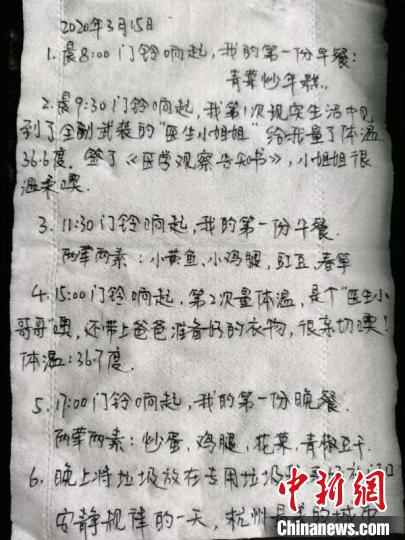 2020年3月15日
1.晨8:00 门铃响起，我的第一份早餐：
青菜炒年糕。
2.晨9:30 门铃响起，我第1次现实生活中见
到了全副武装的"医生小姐姐"给我量了体温
36.6度。签了《医学观察告知书》，小姐姐很
温柔噢。
3. 11:30 门铃响起，我的第一份午餐.
两荤两素：小黄鱼、小鸡腿、豇豆、春笋
4. 15:00 门铃响起，第2次量体温，是个"医生小
哥哥"噢，还带上爸爸准备好的衣物，很亲切噢！
体温：36.7度.
5. 17:00 门铃响起，我的第一份晚餐.
两荤两素：炒蛋，鸡腿，花菜，青椒豆干.
6. 晚上将垃圾放在专用垃圾
安静规律的一天，杭州
中新网
www.chinanews.com